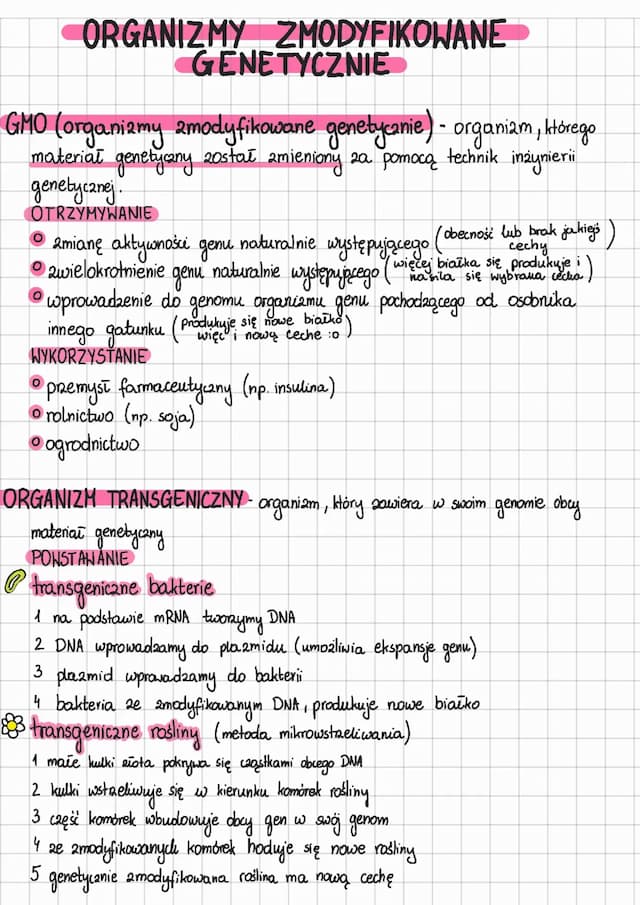 ORGANIZMY ZMODYFIKOWANE
GENETYCZNIE
GMO (organizmy zmodyfikowane genetycznie) - organizm, którego
materiał genetyczny został zmieniony za pomocą technik inżynierii
genetycznej.
OTRZYMYWANIE
zmianę aktywności genu naturalnie występującego (obecność lub brak jakiejś cechy)
zwielokrotnienie genu naturalnie występującego (więcej białka się produkuje i nasila się wybrana cecha)
wprowadzenie do genomu organizmu genu pochodzącego od osobnika
innego gatunku (produkuje się nowe białko więc i nową ceche :o)
WYKORZYSTANIE
przemysł farmaceutyczny (np. insulina)
rolnictwo (np. soja)
ogrodnictwo
ORGANIZM TRANSGENICZNY - organizm, który zawiera w swoim genomie obcy
materiał genetyczny
POWSTAWANIE
transgeniczne bakterie
1 na podstawie mRNA tworzymy DNA
2 DNA wprowadzamy do plazmidu (umożliwia ekspansje genu)
3 plazmid wprowadzamy do bakterii
4 bakteria ze zmodyfikowanym DNA, produkuje nowe białko
transgeniczne rośliny (metoda mikrowstrzeliwania)
1 małe kulki złota pokrywa się cząstkami obcego DNA
2 kulki wstrzeliwuje się w kierunku komórek rośliny
3 część komórek wbudowuje obcy gen w swój genom
4 ze zmodyfikowanych komórek hoduje się nowe rośliny
5 genetycznie zmodyfikowana roślina ma nową cechę